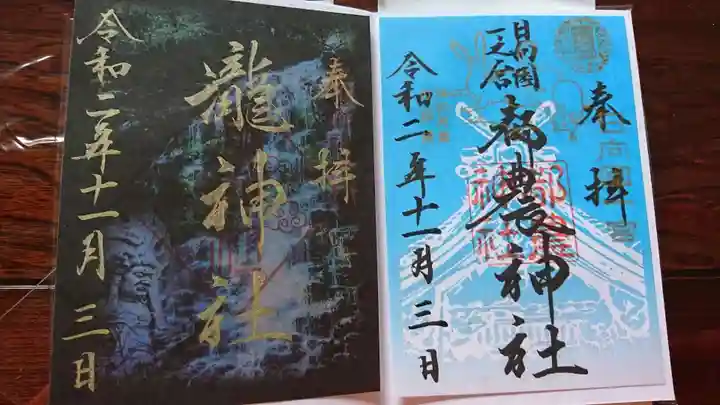 奉拝
瀧神社
令和二年十一月三日
奉拝
日向國
一之宮
都農神社
令和二年十一月三日